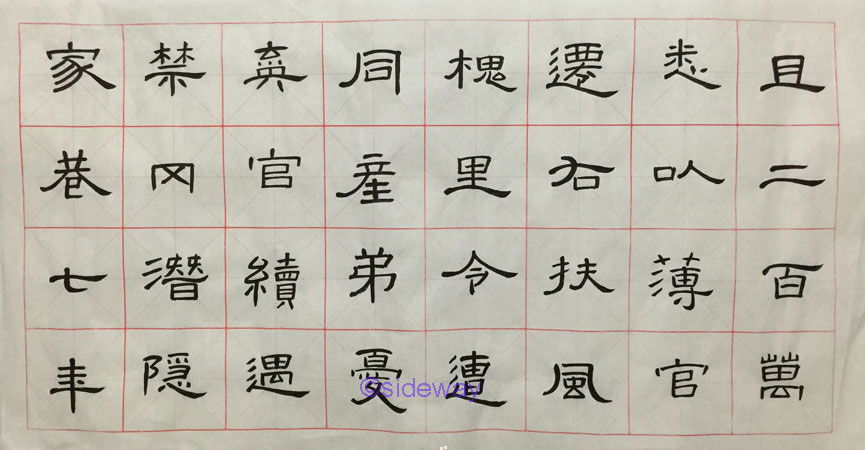 且二百萬
悉以薄官
遷右扶風
槐里令遭
同産弟憂
弃官續遇
禁网潛隐
家巷七年
©sideway